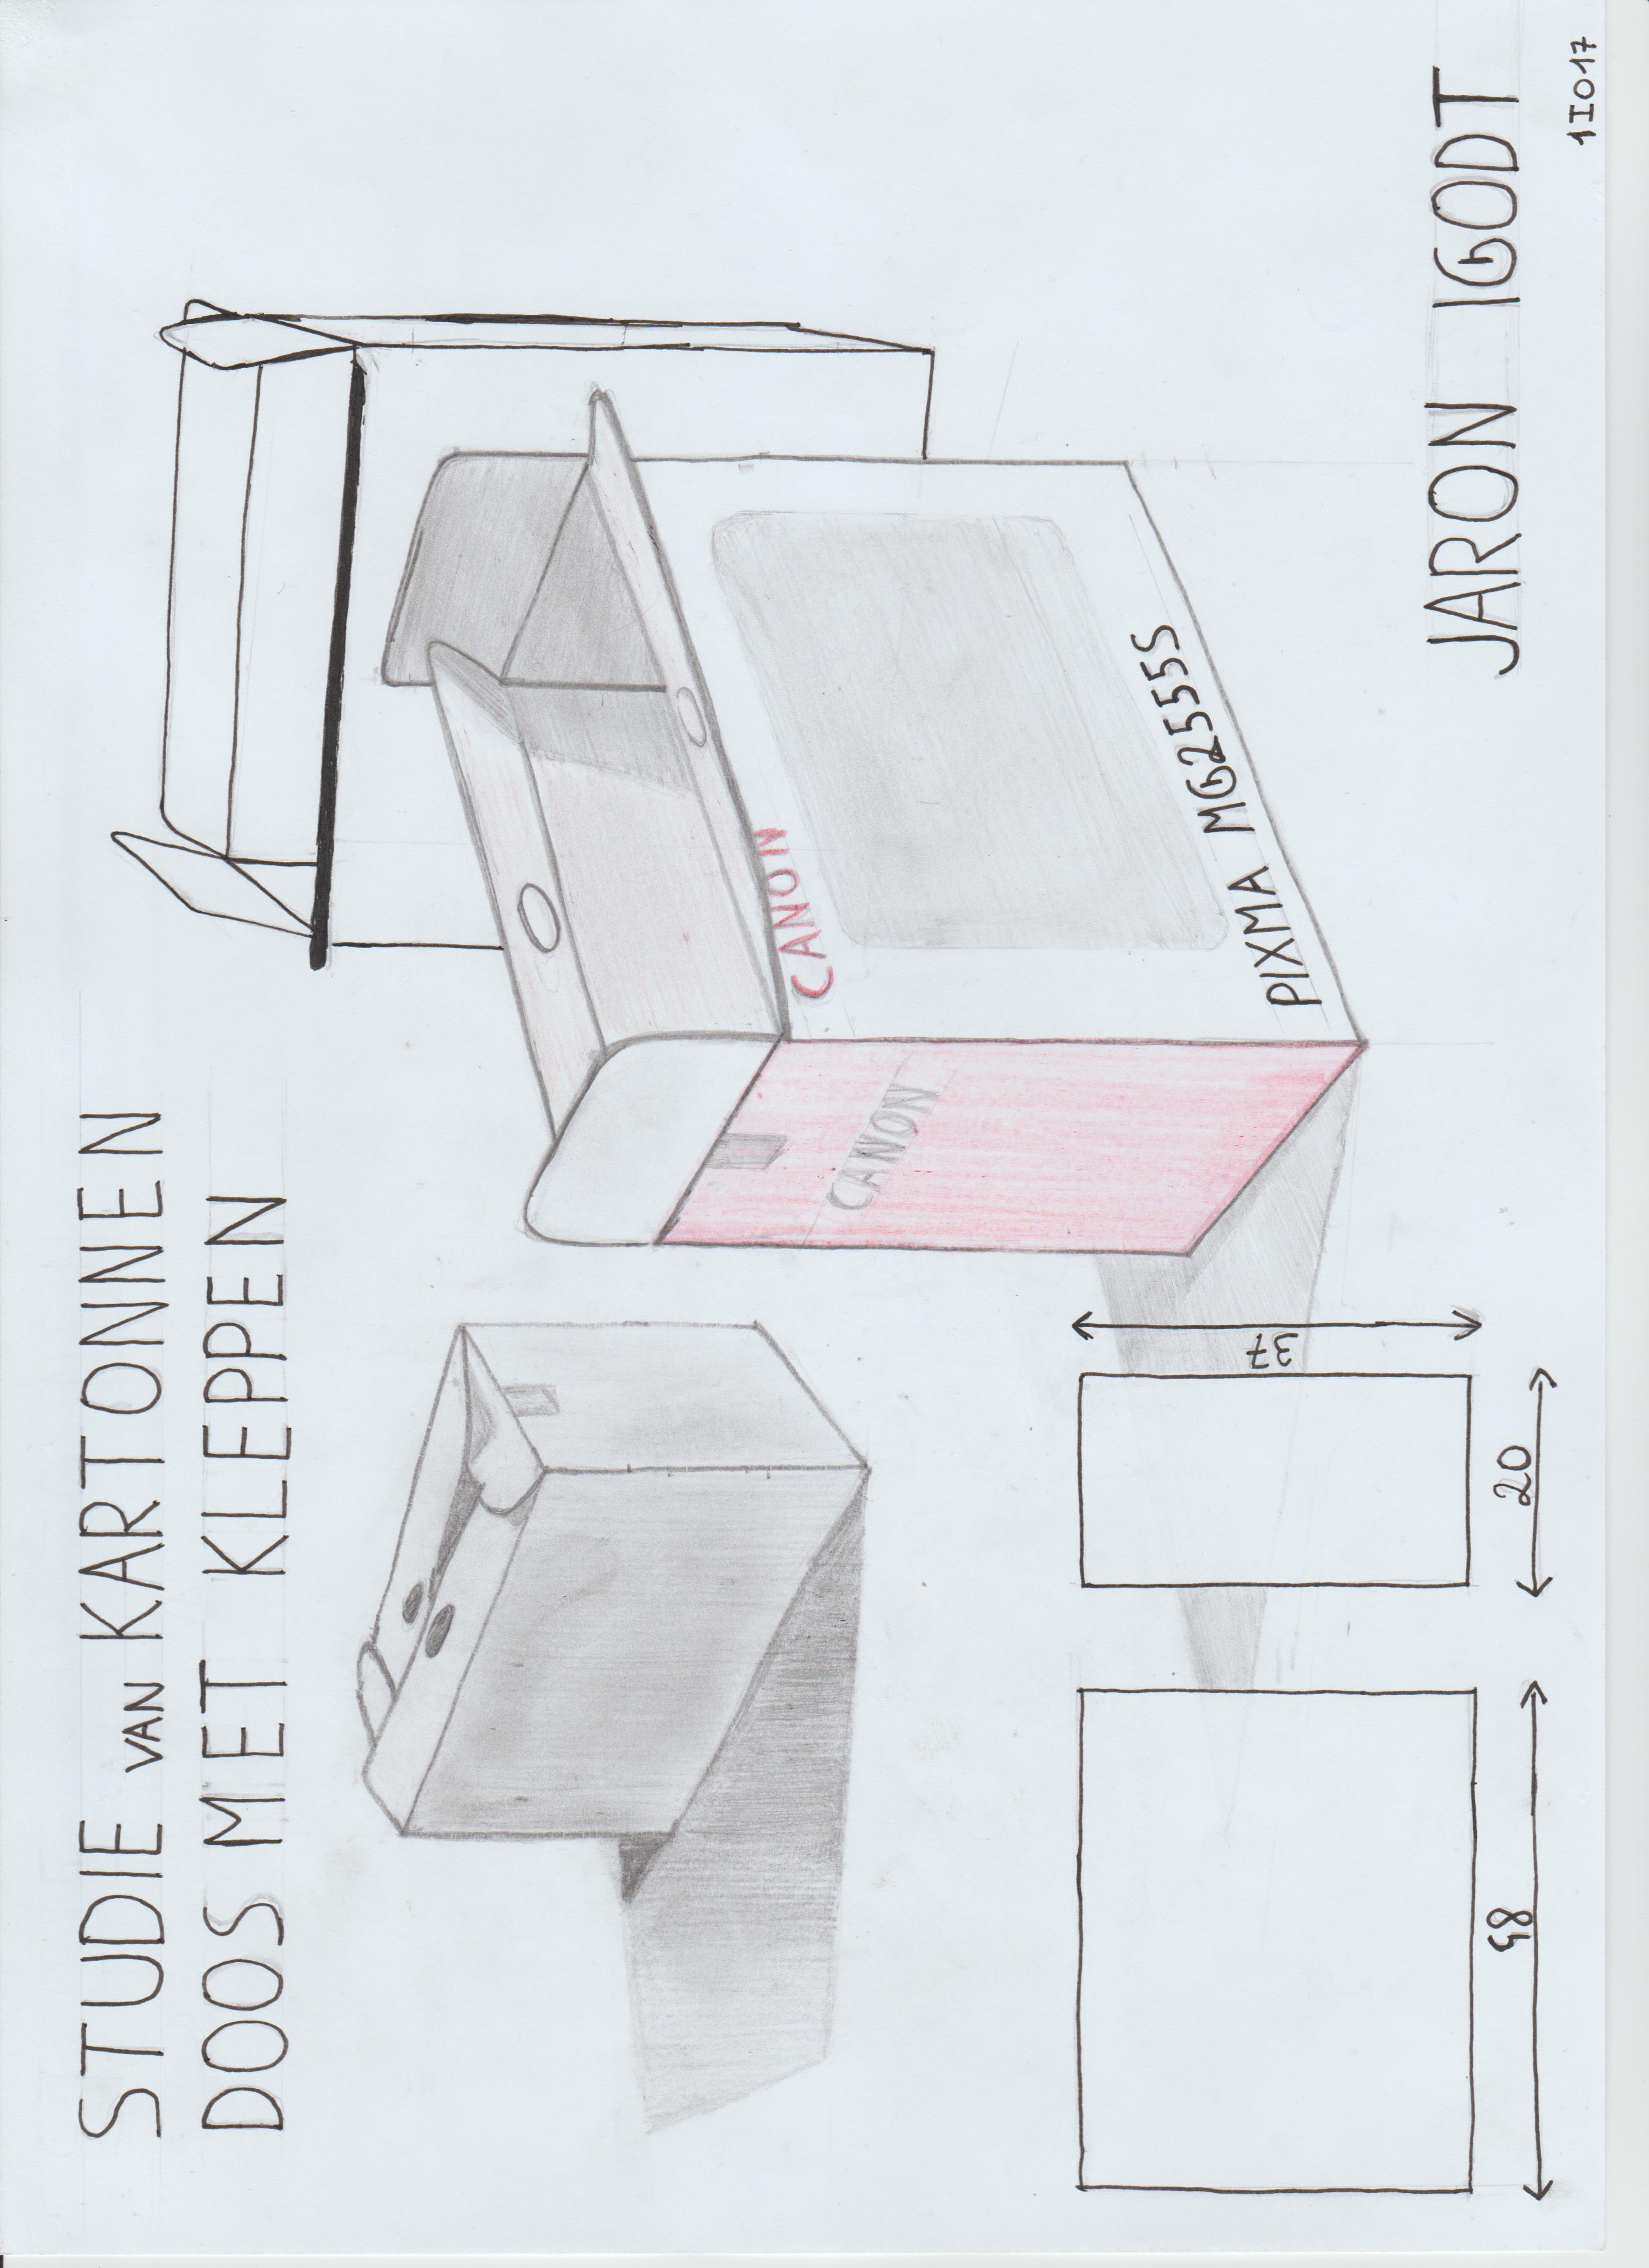 STUDIE VAN KARTONNEN
DOOS MET KLEPPEN
CANON
CANON
PIXMA MG2555S
37
48
20
JARON IGODT
1IO17